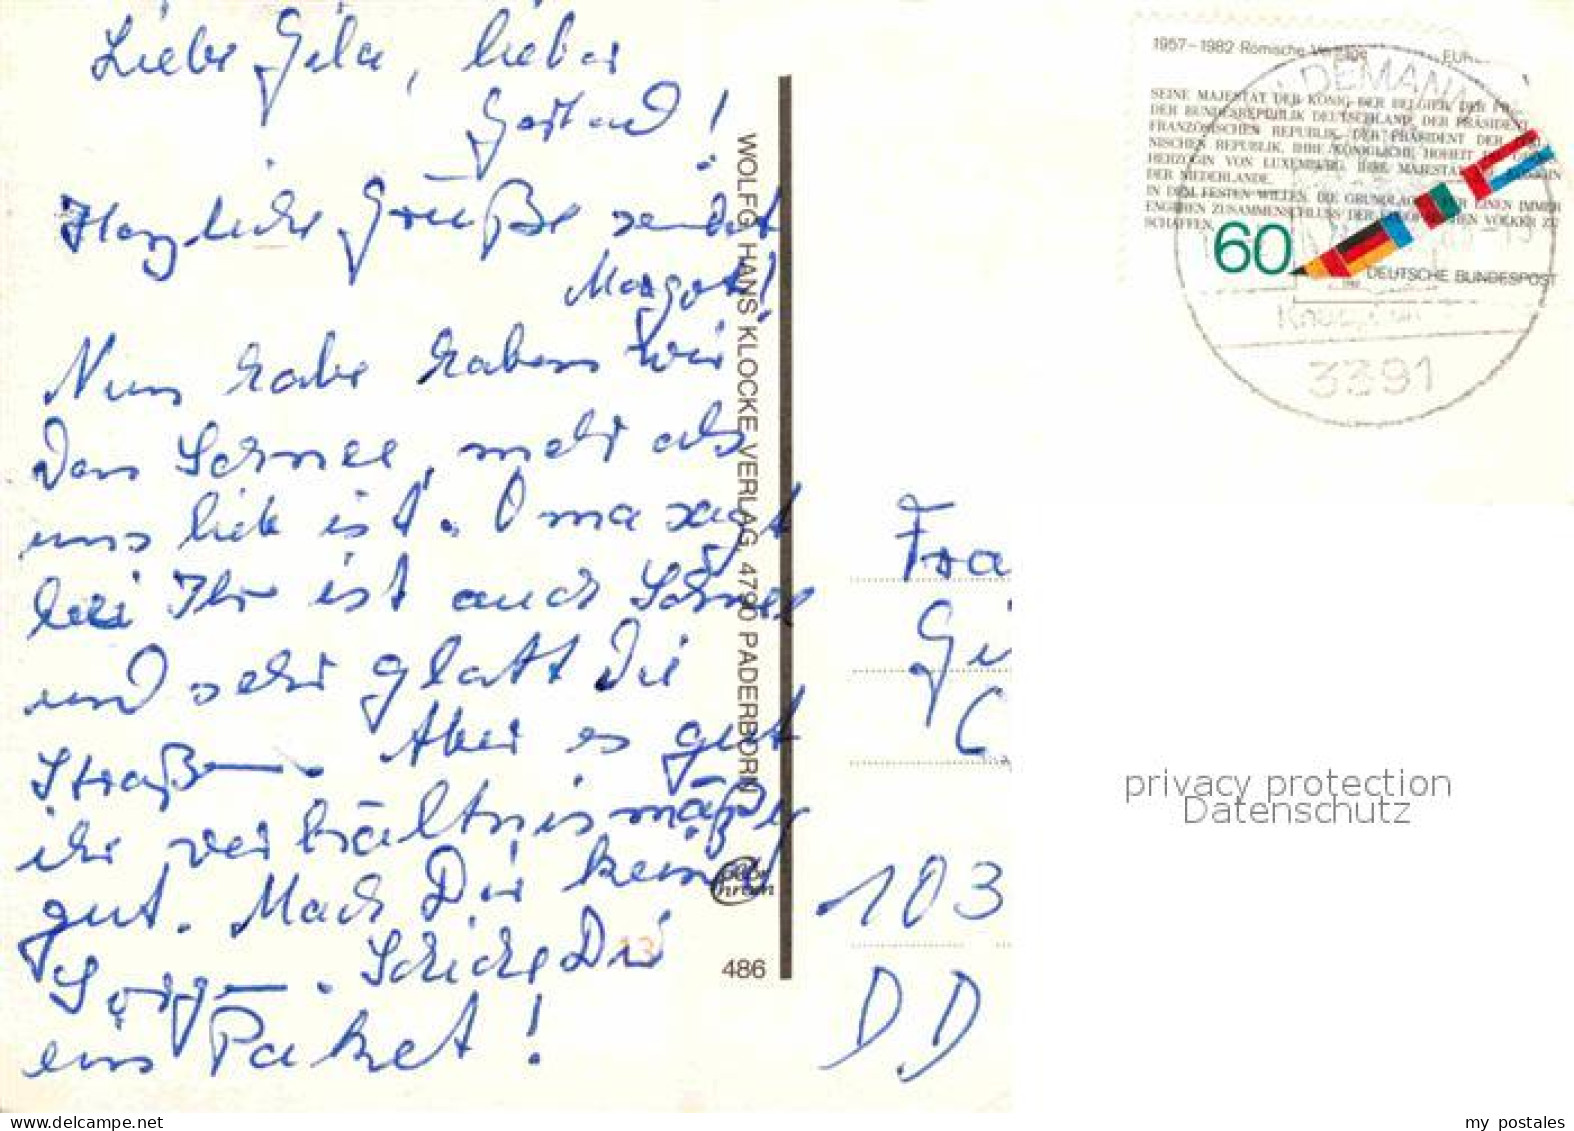 Liebe Gila, lieber
Gerhard!
Herzliche Grüße sendet
Margot!
Nun habe haben wir
Den Schnee, mehr als
uns lieb ist. Oma sagt
bei Ihr ist auch Schnee
und sehr glatt Die
Straßen. Aber es geht
ihr verhältnismäßig
gut. Mach Dir keine
Sorgen. Schicke Dir
ein Paket!
WOLFG. HANS KLOCKE VERLAG, 4790 PADERBORN
486
1957-1982 Römische Verträge
SEINE MAJESTÄT DER KÖNIG DER BELGIER, DER
DER BUNDESREPUBLIK DEUTSCHLAND, DER PRÄSIDENT
FRANZÖSISCHEN REPUBLIK, DER PRÄSIDENT DER
NISCHEN REPUBLIK, IHRE KÖNIGLICHE HOHEIT
HERZOGIN VON LUXEMBURG, IHRE MAJESTÄT
DER NIEDERLANDE,
IN DEM FESTEN WILLEN, DIE GRUNDLAGEN EINEN IMMER
ENGEREN ZUSAMMENSCHLUSS DER VÖLKER ZU
SCHAFFEN,
60
DEUTSCHE BUNDESPOST
3391
Fra
Gü
C
103
D.D
privacy protection
Datenschutz
my postales